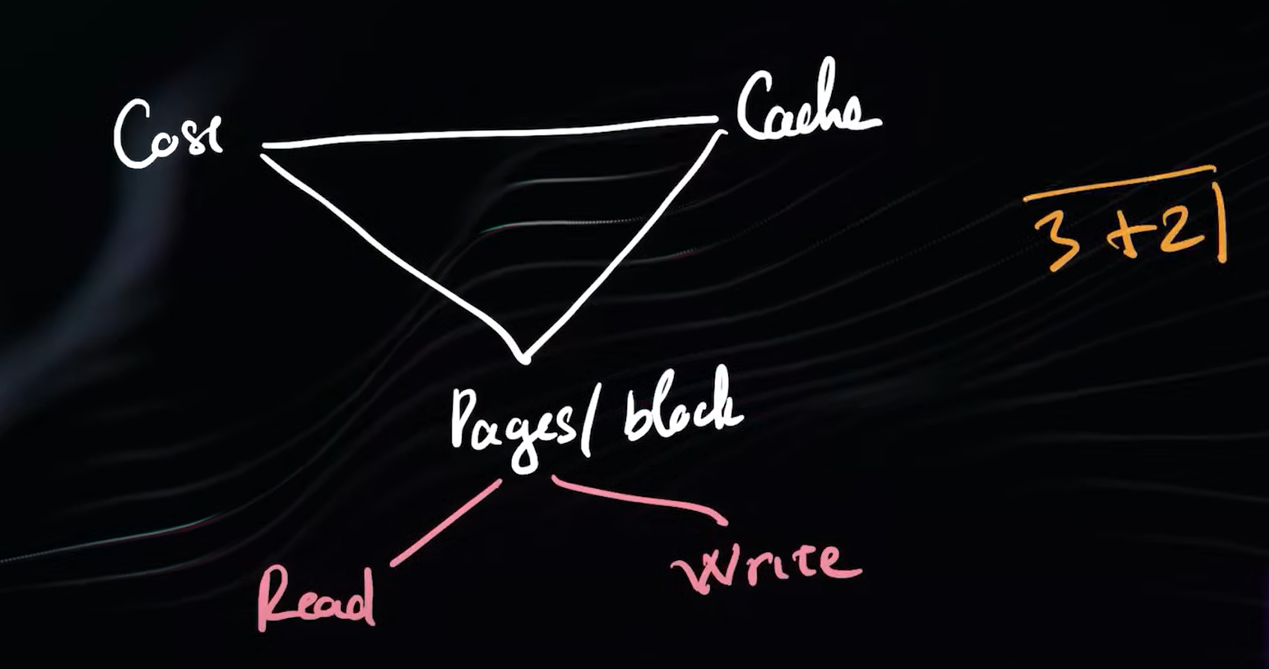 Cost
Cache
3 + 2
Pages/ block
Read
Write